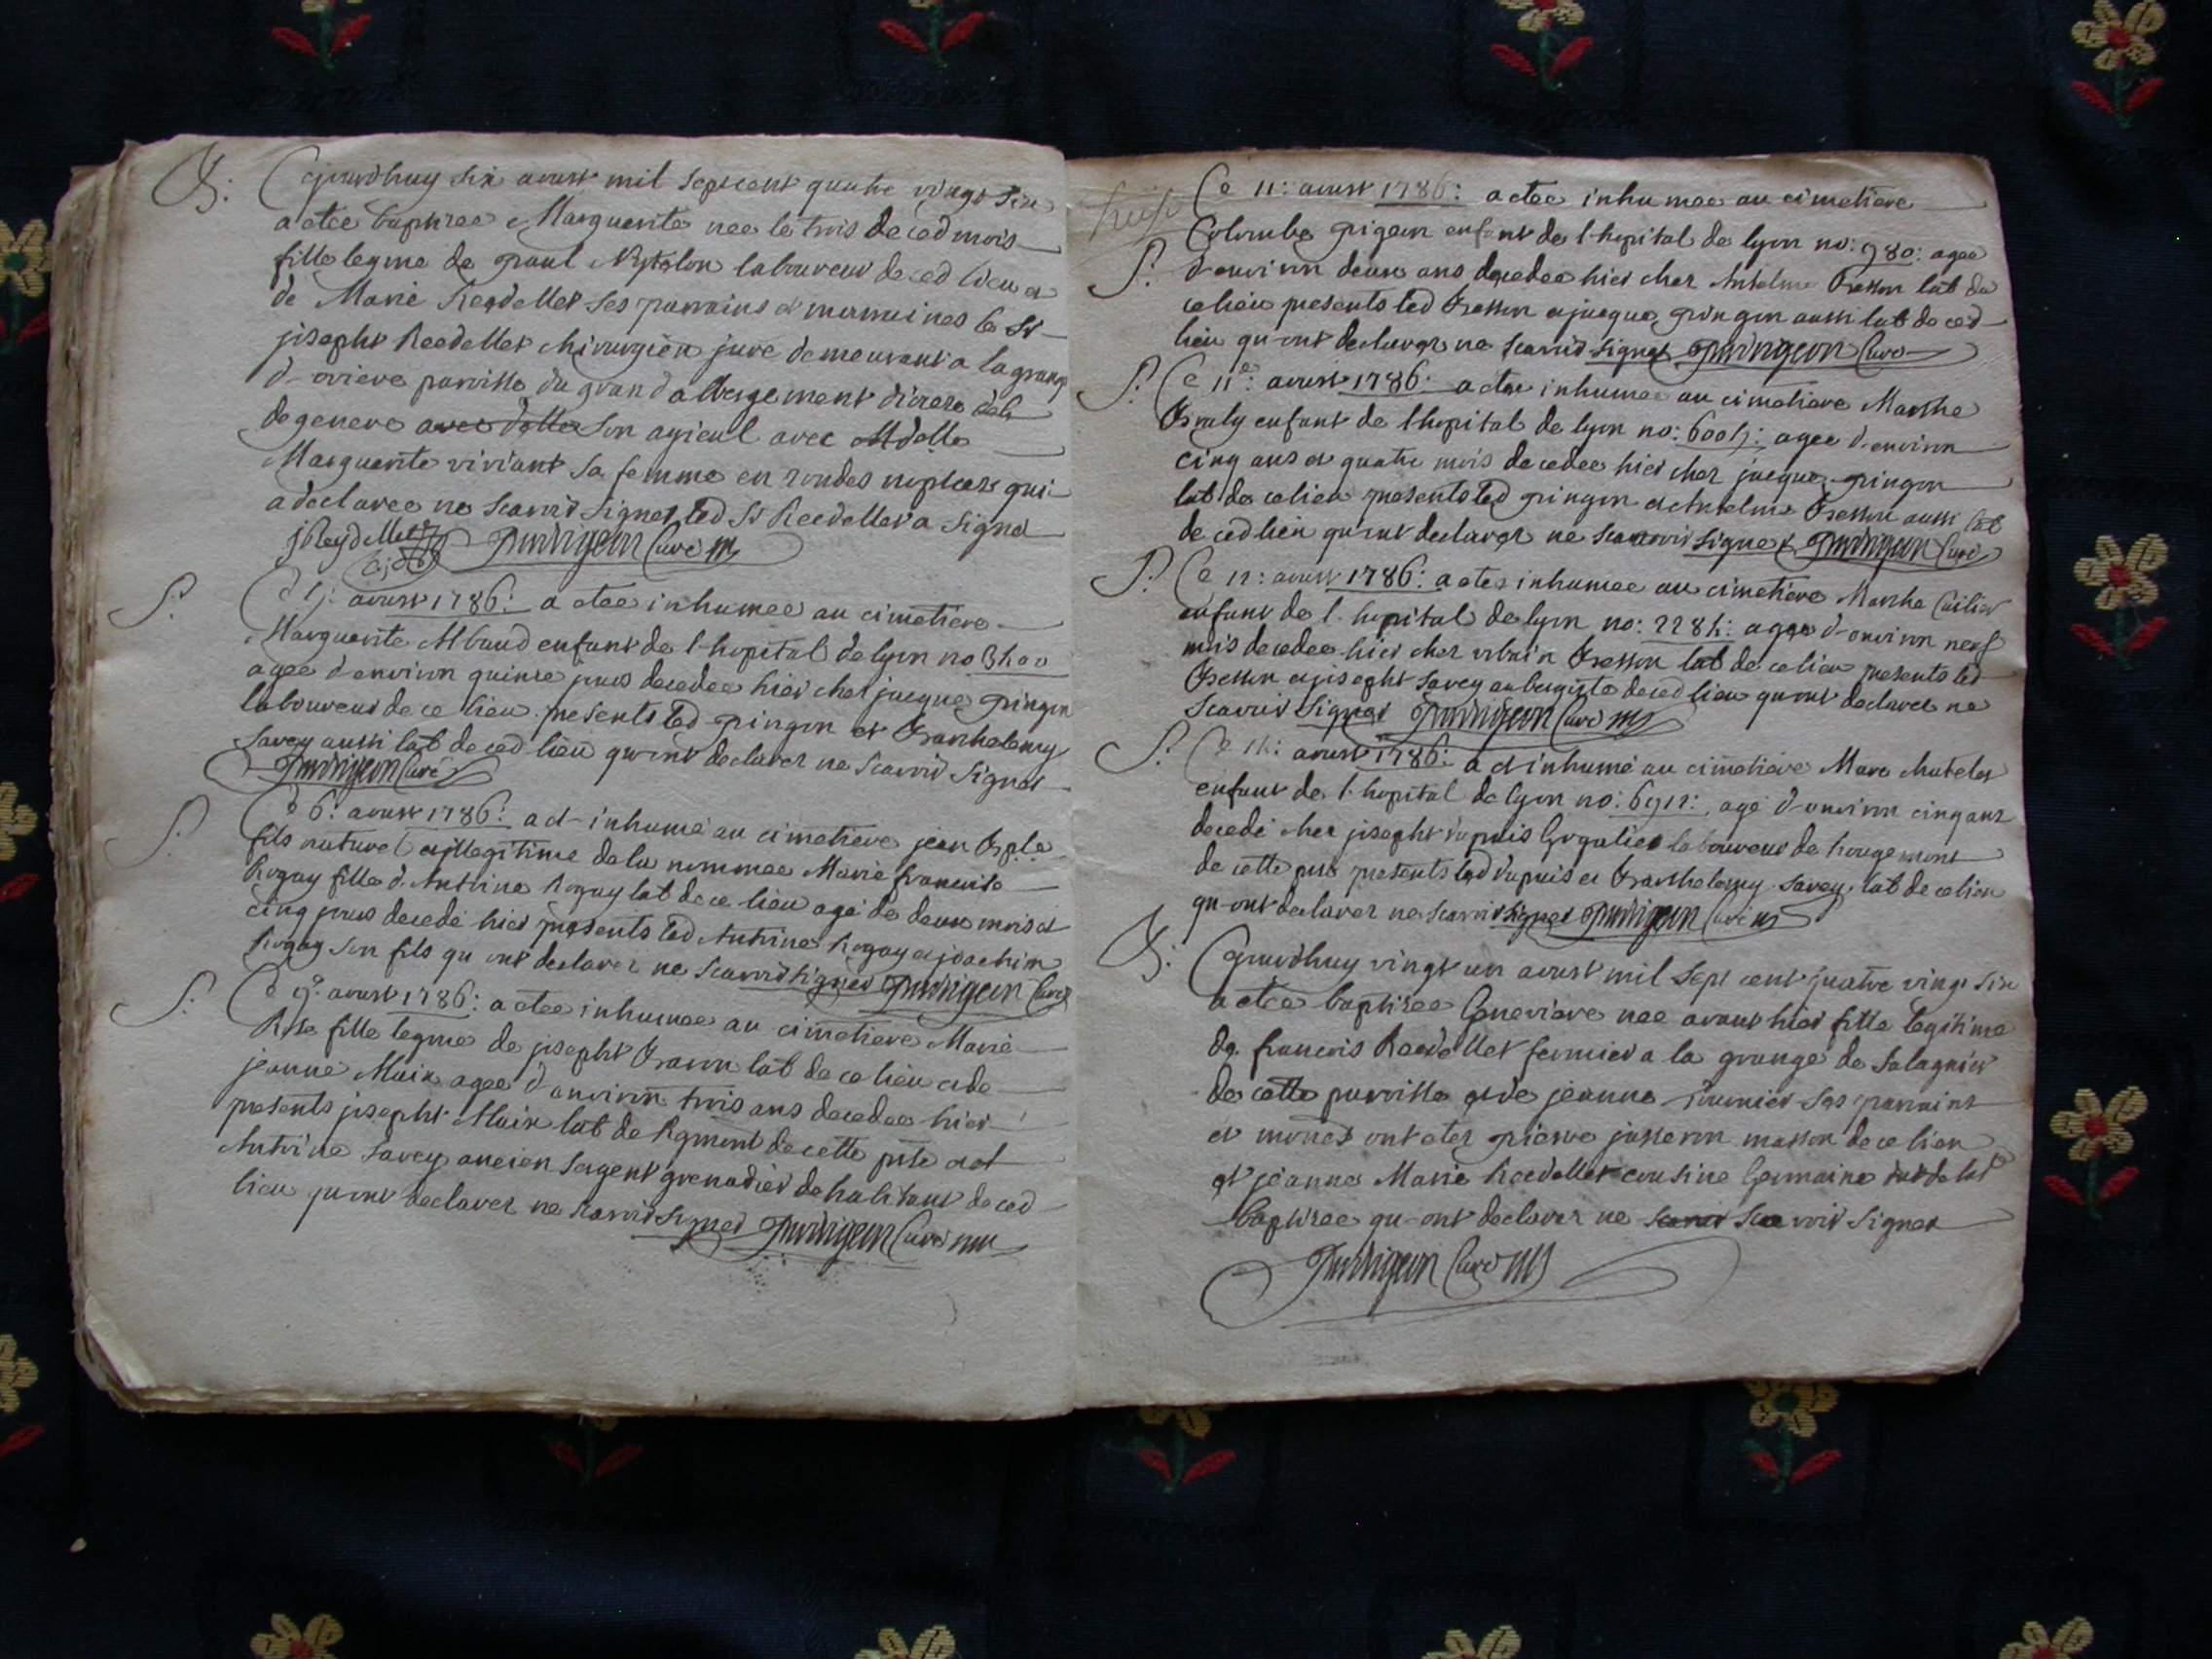 B: Cejourdhuy six aoust mil septcent quatre vingt six
a etee baptisee Marguerite nee le trois de ced mois
fille legme de paul laboureur de ced lieu et
de Marie Reedellet ses parrains et marraines le Sr
joseph Reedellet chirurgien juré demeurant a la grange
d-oriere parroisse du grand abbergement
de geneve avec dlle son ayieul avec Mdelle
Marguerite viviant sa femme en secondes nopces qui
a declaree ne scavoir signer led Sr Reedellet a signé
JReydellet Pourrigeon Curé
S: Ce 5: aoust 1786: a etee inhumee au cimetiere
Marguerite Abaud enfant de l-hopital de lyon no 3400
agee d environ quinze jours decedee hier chez jacque gringon
laboureur de ce lieu presents led gringon et Barthelemy
Savey aussi lab de ced lieu qu ont declarer ne scavoir signer
Pourrigeon Curé
S: Ce 6: aoust 1786: a et inhumé au cimetiere jean
fils naturel et illegitime de la nommee Marie francoise
Rogay fille d. Antoine Rogay lab de ce lieu agé de deux mois et
cinq jours decedé hier presents led Antoine Rogay et joachim
Rogay son fils qu ont declarer ne scavoir signer Pourrigeon Curé
S: Ce 9: aoust 1786: a etee inhumee au cimetiere Marie
Rose fille legme de joseph Baron lab de ce lieu et de
jeanne Muin agee d environ trois ans decedee hier
presents joseph Muin lab de de cette psse et
Antoine Savey ancien sergent grenadier de habitant de ced
lieu qu ont declarer ne scavoir signer Pourrigeon Curé
Ce 11: aoust 1786: a etee inhumee au cimetiere
Colombe pigeon enfant de l-hopital de lyon no: 980: agee
S: d-environ deux ans decedee hier chez Antelme Besson lab de
ce lieu presents led Besson et jacque gringon aussi lab de ced
lieu qu-ont declarer ne scavoir signer Pourrigeon Curé
S: Ce 11e: aoust 1786: a etee inhumee au cimetiere Marthe
enfant de l hopital de lyon no: 6005: agee d-environ
cinq ans et quatre mois decedee hier chez jacque gringon
lab de ce lieu presents led gringon et Antelme Besson aussi lab
de ced lieu qu-ont declarer ne scavoir signer Pourrigeon Curé
S: Ce 12: aoust 1786: a etee inhumee au cimetiere Marthe Cuilier
enfant de l. hopital de lyon no: 2284: agee d-environ neuf
mois decedee hier chez urbain Besson lab de ce lieu presents led
Besson et joseph Savey aubergiste de ced lieu qu ont declarer ne
scavoir signer Pourrigeon Curé
S: Ce 14: aoust 1786: a et inhumé au cimetiere Marc chatelet
enfant de l. hopital de lyon no: 6912: agé d-environ cinq ans
decedé chez joseph dupuis laboureur de Rougemont
de cette psse presents led dupuis et Barthelemy Savey, lab de ce lieu
qu-ont declarer ne scavoir signer Pourrigeon Curé
B: Cejourdhuy vingt un aoust mil sept cent quatre vingt six
a etee baptisee Genevieve nee avant hier fille legitime
de francois Reedellet fermier a la grange de Salagnier
de cette parroisse et de jeanne fournier ses parrains
et mones ont etez pierre josseron masson de ce lieu
et jeanne Marie Reedellet cousine Germaine de la
baptisee qu-ont declarer ne scavoir signer
Pourrigeon Curé